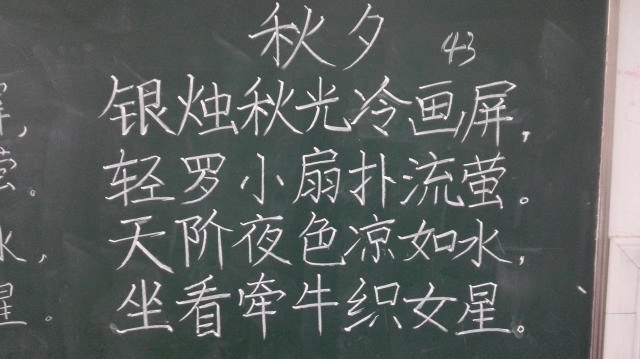 秋夕 43
银烛秋光冷画屏,
轻罗小扇扑流萤。
天阶夜色凉如水,
坐看牵牛织女星。
屏,
萤。
水,
星。